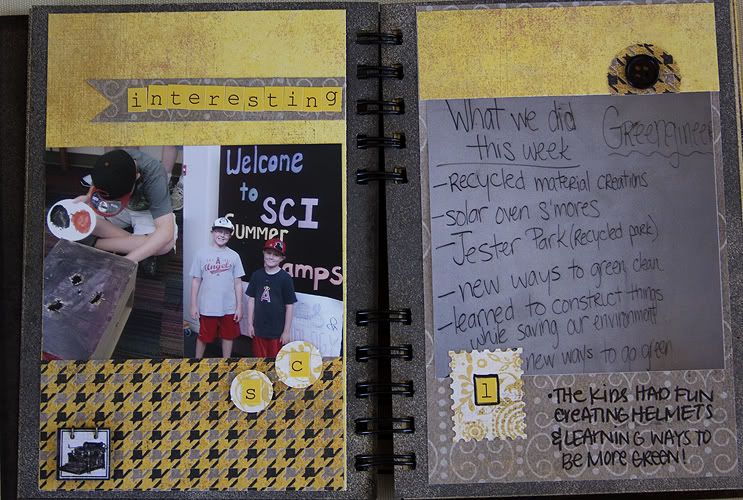 interesting
Welcome
to
SCI
Summer
amps
Angels
s
c
What we did
this week
Greengineer
-Recycled material creations
-solar oven s'mores
-Jester Park (Recycled park)
-new ways to green clean
-learned to construct things
while saving our environment
new ways to go green
1
•THE KIDS HAD FUN
CREATING HELMETS
& LEARNING WAYS TO
BE MORE GREEN!